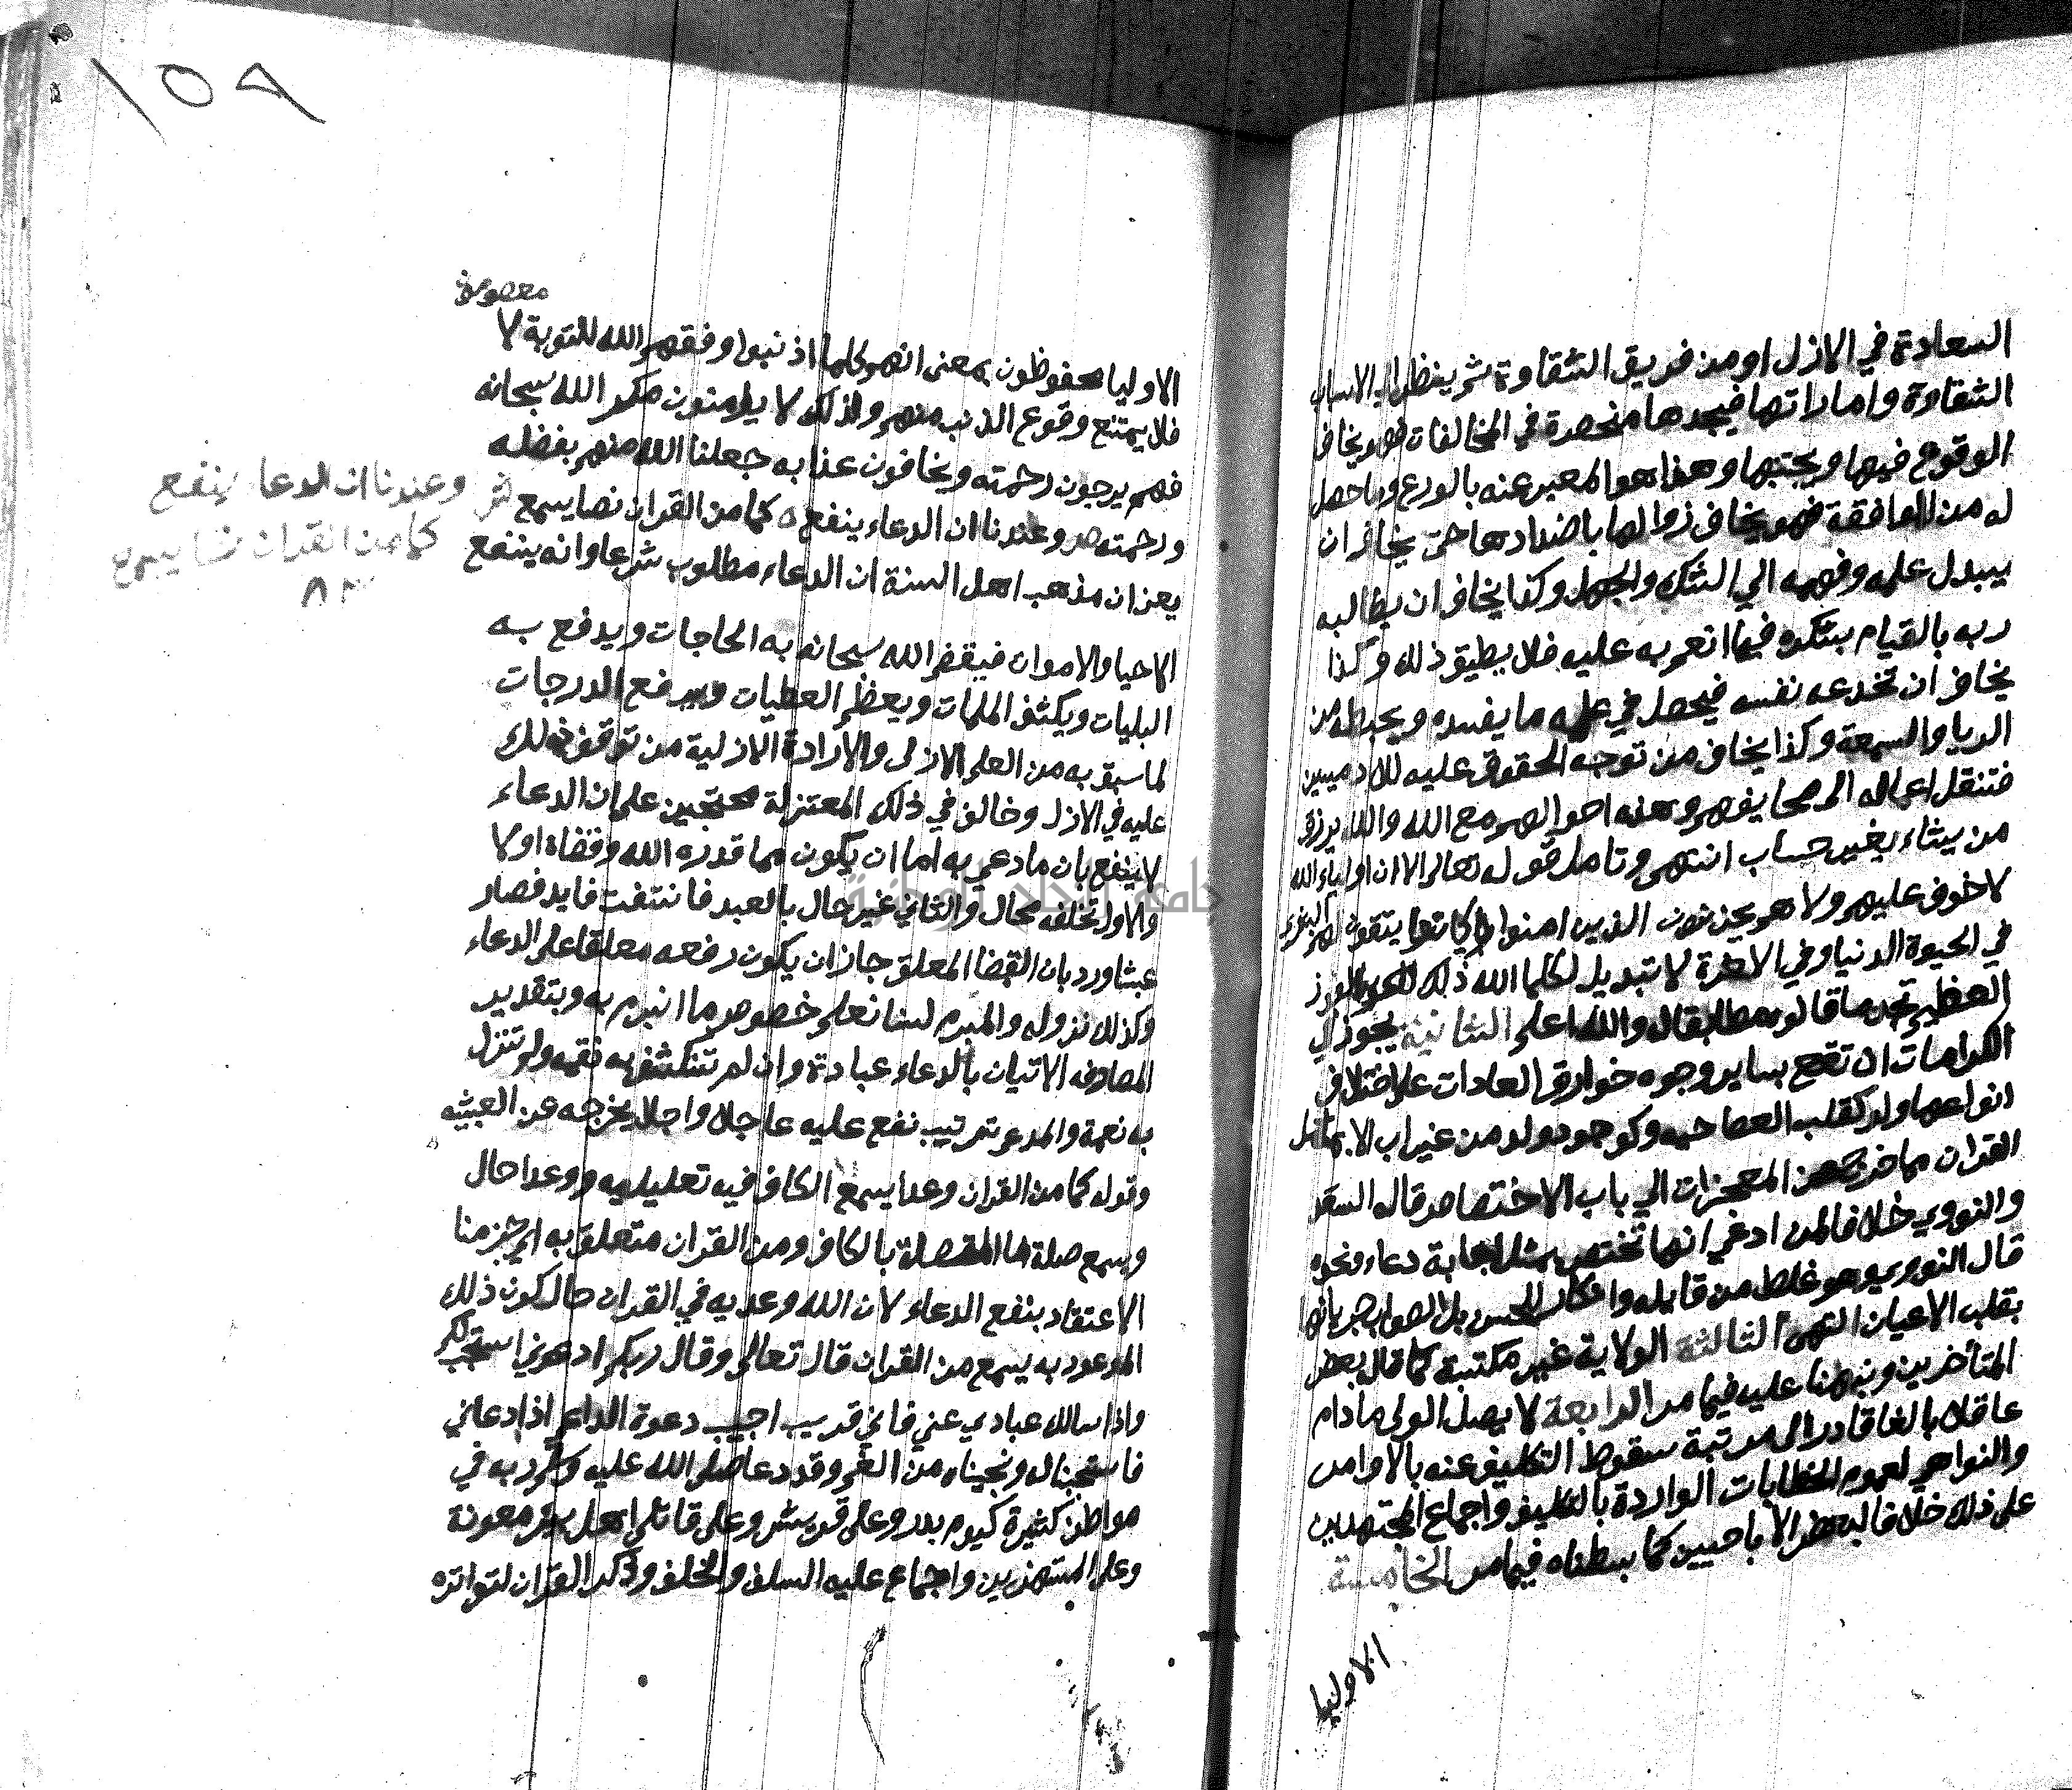 السعادة في الازل او من فريق الشقاوة ثم ينظر الي الاسباب
الشقاوة واماراتها فيجدها منحصرة في المخالفات فهو يخاف
الوقوع فيها ويجتنبها وهذا هو المعبر عنه بالورع وما حصل
له من الموافقة فهو يخاف زوالها باضدادها حتى يخاف ان
يبدل علمه وفهمه الي الشك والجهل وكذا يخاف ان يطالبه
ربه بالقيام بشكره فيما انعم به عليه فلا يطيق ذلك وكذا
يخاف ان تخدعه نفسه فيحصل في علمه ما يفسده ويحبطه من
الريا والسمعة وكذا يخاف من توجه الحقوق عليه للادميين
فتنقل اعماله الى صحايفهم وهذه احوالهم مع الله والله يرزق
من يشاء بغير حساب انتهى وتامل قوله تعالى الا ان اولياء الله
لا خوف عليهم ولا هم يحزنون الذين امنوا وكانوا يتقون لهم البشرى
في الحيوة الدنيا وفي الاخرة لا تبديل لكلمات الله ذلك هو الفوز
العظيم تجد ما قالوه مطابقا له والله اعلم الثانية يجوز في
الكرامات ان تقع بساير وجوه خوارق العادات على اختلاف
انواعها ولو كقلب العصا حية وكوجود ولد من غير اب الا بمثل
القران مما خرج عن المعجزات الي باب الاختصاص قال السعد
والنووي خلافا لمن ادعى انها تختص بمثل اجابة دعاء ونحوه
قال النووي وهو غلط من قايله وانكار للحس بل الصواب جريانها
بقلب الاعيان انتهى الثالثة الولاية غير مكتسبة كما قال بعض
المتأخرين ونبهنا عليه فيما مر الرابعة لا يصل الولي ما دام
عاقلا بالغا قادرا الى مرتبة سقوط التكليف عنه بالاوامر
والنواهي لعموم الخطابات الواردة بالتكليف واجماع المجتهدين
على ذلك خلافا لبعض الاباحيين كما بسطناه فيما مر الخامسة
الاوليا
١٥٩
معصومون
الاوليا محفوظون بمعنى انهم كلما اذنبوا وفقهم الله للتوبة لا
فلا يمتنع وقوع الذنب منهم ولذلك لا يامنون مكر الله سبحانه
فهم يرجون رحمته ويخافون عذابه جعلنا الله منهم بفضله
ورحمته ص وعندنا ان الدعاء ينفع ه كما من القران نصا يسمع ش
يعني ان مذهب اهل السنة ان الدعاء مطلوب شرعا وانه ينتفع
الاحيا والاموات فيقضي الله سبحانه به الحاجات ويدفع به
البليات ويكشف الملمات ويعظم العطيات ويرفع الدرجات
لما سبق به من العلم الازلي والارادة الازلية من توقف ذلك
عليه في الازل وخالف في ذلك المعتزلة محتجين على ان الدعاء
لا ينفع بان ما دعي به اما ان يكون مما قدره الله وقضاه او لا
والاول تخلفه محال والثاني غير حال بالعبد فانتفت فايدته فصار
عبثا ورد بان القضا المعلق جاز ان يكون رفعه معلقا على الدعاء
وكذلك نزوله والمبرم لسنا نعلم خصوص ما انبرم به وبتقدير
المصادفه الاتيان بالدعاء عبادة وان لم تنكشف به نقمه ولم تنزل
به نعمة والمدعى ترتيب نفع عليه عاجلا واجلا يخرجه عن العبثيه
وقوله كما من القران وعدا يسمع الكاف فيه تعليليه ووعدا حال
ويسمع صلة ما المتصلة بالكاف ومن القران متعلق به اي جزمنا
الاعتقاد بنفع الدعاء لان الله وعد به في القران حال كون ذلك
الموعود به يسمع من القران قال تعالى وقال ربكم ادعوني استجب لكم
واذا سالك عبادي عني فاني قريب اجيب دعوة الداعي اذا دعاني
فاستجبنا له ونجيناه من الغم وقد دعا صلى الله عليه وسلم ربه في
مواطن كثيرة كيوم بدر وعلى قريش وعلى قاتلي اهل بئر معونة
وعلى المستهزئين واجماع عليه السلف والخلف وذكر القران لتواتره
وعندنا ان الدعا ينفع
كما من القران نصا يسمع
جامعة النجاح الوطنية